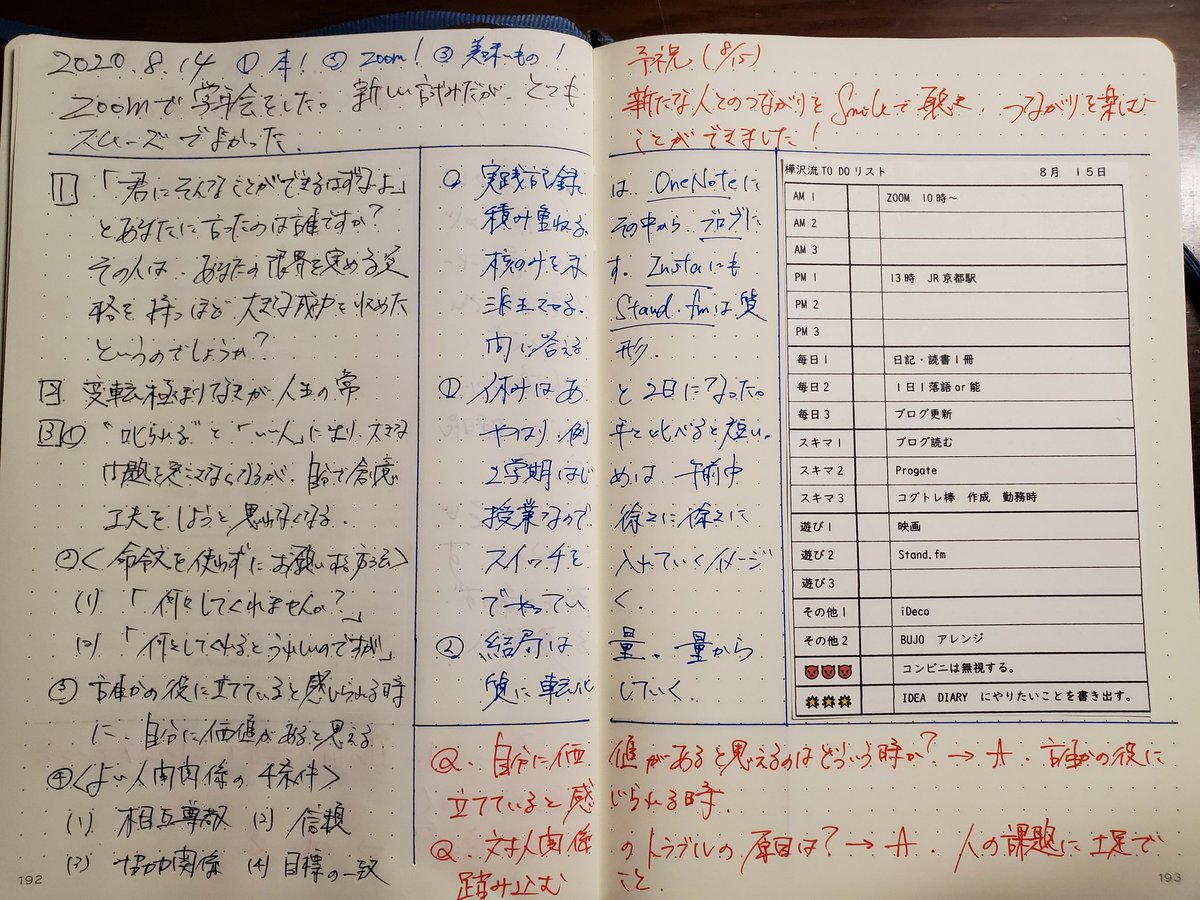 2020.8.14 ①本! ② Zoom! ③美味いもの!
Zoomで学年会をした。新しい試みだが、とても
スムーズでよかった。
1 「君にそんなことができるはずないよ」
とあなたに言ったのは誰ですか?
その人は、あなたの限界を定める資
格を持つほど大きな成功を収めた
というのでしょうか?
2 変転極まりなきが人生の常
3 ① "叱られる"と「いい人」になり、大きな
問題を起こさなくなるが、自分で創意
工夫をしようと思わなくなる。
②<命令文を使わずにお願いする方法>
(1) 「何々してくれませんか?」
(2) 「何々してくれるとうれしいのですが」
③ 誰かの役に立てていると感じられる時
に、自分に価値があると思える
④<よい人間関係の4条件>
(1) 相互尊敬 (2) 信頼
(3) 協力関係 (4) 目標の一致
192
予祝 (8/15)
新たな人とのつながりをSmileで聴き、つながりを楽しむ
ことができました!
実践記録は、OneNoteに
積み重ねる。その中から、ブログに
核のみを示す。Instaにも
派生させる。Stand.fmは質
問に答える形。
① 休みはあと2日になった。
やはり、例年と比べると短い。
2学期はじめは、午前中
授業なので徐々に徐々に
スイッチを入れていくイメージ
でやっていく。
② 結局は量。量から
質に転化していく。
樺沢流TO DOリスト 8月 15日
AM 1 ZOOM 10時~
AM 2
AM 3
PM 1 13時 JR京都駅
PM 2
PM 3
毎日1 日記・読書1冊
毎日2 1日1落語or能
毎日3 ブログ更新
スキマ1 ブログ読む
スキマ2 Progate
スキマ3 コグトレ棒 作成 勤務時
遊び1 映画
遊び2 Stand.fm
遊び3
その他1 iDeco
その他2 BUJO アレンジ
コンビニは無視する。
IDEA DIARY にやりたいことを書き出す。
Q. 自分に価値があると思えるのはどういう時か? → A. 誰かの役に
立てていると感じられる時
Q. 対人関係のトラブルの原因は? → A. 人の課題に土足で
踏み込むこと。
193